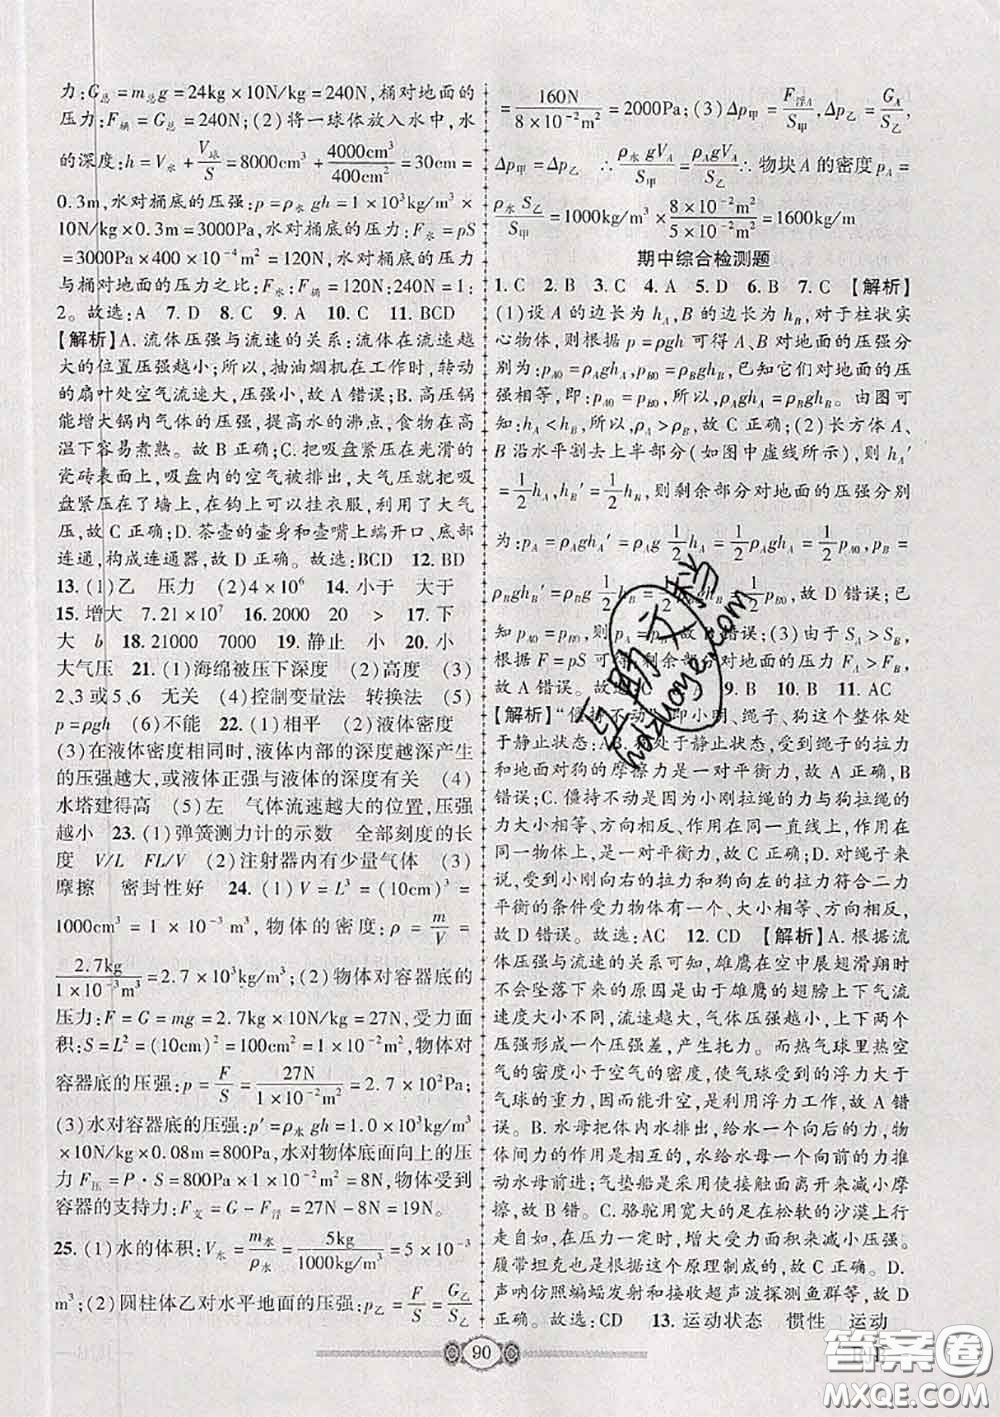 力:G总=m总g=24kg×10N/kg=240N,桶对地面的
压力:F桶=G总=240N;(2)将一球体放入水中,水
的深度:h=V水+V球/S=8000cm³+4000cm³/400cm²=30cm=
0.3m,水对桶底的压强:p=ρ水gh=1×10³kg/m³×
10N/kg×0.3m=3000Pa,水对桶底的压力:F水=pS
=3000Pa×400×10⁻⁴m²=120N,水对桶底的压力
与桶对地面的压力之比:F水:F桶=120N:240N=1:
2。故选:A 7.D 8.C 9.A 10.C 11.BCD
【解析】A.流体压强与流速的关系:流体在流速越
大的位置压强越小;所以,抽油烟机在工作时,转动
的扇叶处空气流速大,压强小,故A错误;B.高压锅
能增大锅内气体的压强,提高水的沸点,食物在高
温下容易煮熟。故B正确;C.把吸盘紧压在光滑的
瓷砖表面上,吸盘内的空气被排出,大气压就把吸
盘紧压在了墙上,在钩上可以挂衣服,利用了大气
压,故C正确;D.茶壶的壶身和壶嘴上端开口、底部
连通,构成连通器,故D正确。故选:BCD 12.BD
13.(1)乙 压力 (2)4×10⁶ 14.小于 大于
15.增大 7.21×10⁷ 16.2000 20 > 17.下
大 b 18.21000 7000 19.静止 小 20.小
大气压 21.(1)海绵被压下深度 (2)高度 (3)
2、3或5、6 无关 (4)控制变量法 转换法 (5)
p=ρgh (6)不能 22.(1)相平 (2)液体密度
(3)在液体密度相同时,液体内部的深度越深产生
的压强越大,或液体压强与液体的深度有关 (4)
水塔建得高 (5)左 气体流速越大的位置,压强
越小 23.(1)弹簧测力计的示数 全部刻度的长
度 V/L FL/V (2)注射器内有少量气体 (3)
摩擦 密封性好 24.(1)V=L³=(10cm)³=
1000cm³=1×10⁻³m³,物体的密度:ρ=m/V=
2.7kg/1×10⁻³m³=2.7×10³kg/m³;(2)物体对容器底的
压力:F=G=mg=2.7kg×10N/kg=27N,受力面
积:S=L²=(10cm)²=100cm²=0.01m²,物体对
容器底的压强:p=F/S=27N/1×10⁻²m²=2.7×10³Pa
(3)水对容器底的压强:p′=ρ水gh=1.0×10³kg/m³
×10N/kg×0.08m=800Pa,水对物体底面向上的压
力F压=P·S=800Pa×1×10⁻²m²=8N,物体受到
容器的支持力:F支=G-F浮=27N-8N=19N。
25.(1)水的体积:V水=m水/ρ水=5kg/1000kg/m³=5×10⁻³
m³;(2)圆柱体乙对水平地面的压强:p乙=F/S=G乙/S乙
=160N/8×10⁻²m²=2000Pa;(3)Δp甲=F浮A/S甲,Δp乙=GA/S乙
Δp甲=Δp乙 ∴ρ水gVA/S甲=ρAgVA/S乙∴物块A的密度ρA=
ρ水S乙/S甲=1000kg/m³×8×10⁻²m²/5×10⁻²m²=1600kg/m
期中综合检测题
1.C 2.B 3.C 4.A 5.D 6.B 7.C 【解析】
(1)设A的边长为hA,B的边长为hB,对于柱状实
心物体,则根据p=ρgh可得A、B对地面的压强分
别为:pA0=ρAghA,pB0=ρBghB,已知它们对地面的压
强相等,即:pA0=pB0,所以,ρAghA=ρBghB,由图可
知:hA<hB,所以,ρA>ρB,故C正确;(2)长方体A、
B沿水平割去上半部分(如图中虚线所示),则hA′
=1/2hA,hB′=1/2hB,则剩余部分对地面的压强分别
为:pA=ρAghA′=ρAg 1/2hA=1/2ρAghA=1/2pA0,pB=
ρBghB′=ρBg 1/2hB=1/2ρBghB=1/2pB0,故D错误;已
知pA0=pB0,则pA=pB,故B错误;(3)由于SA>SB,
根据F=pS可知,剩余部分对地面的压力FA>FB,
故A错误。故选:C 8.D 9.B 10.B 11.AC
【解析】“僵持不动”,即小刚、绳子、狗这个整体处
于静止状态:AB.狗处于静止状态,受到绳子的拉力
和地面对狗的摩擦力是一对平衡力,故A正确,B
错误;C.僵持不动是因为小刚拉绳的力与狗拉绳的
力大小相等、方向相反、作用在同一直线上,作用在
同一物体上,是一对平衡力,故C正确;D.对绳子来
说,受到小刚向右的拉力和狗向左的拉力符合二力
平衡的条件受力物体有一个、大小相等、方向相反,
故D错误。故选:AC 12.CD 【解析】A.根据流
体压强与流速的关系可知,雄鹰在空中展翅滑翔时
不会坠落下来的原因是由于雄鹰的翅膀上下气流
速度大小不同,流速越大,气体压强越小,上下两个
压强形成一个压强差,产生托力。而热气球里热空
气的密度小于空气的密度,使气球受到的浮力大于
气球的重力,因而能升空,是利用了浮力工作,故A错
误。B.水母把体内水排出,给水一个向后的力,物
体间力的作用是相互的,水给水母一个向前的力推
动水母前进;气垫船是采用使接触面离开来减小摩
擦,故B错。C.骆驼用宽大的足在松软的沙漠上行
走自如,是利用增大受力面积的方法来减小压强。
履带坦克也是根据这个原理制成的,故C正确。D.
声呐仿照蝙蝠发射和接收超声波探测鱼群等,故D
正确。故选:CD 13.运动状态 惯性 运动
90
答案圈
MXQE.COM
互助文档
hdzuoye.com